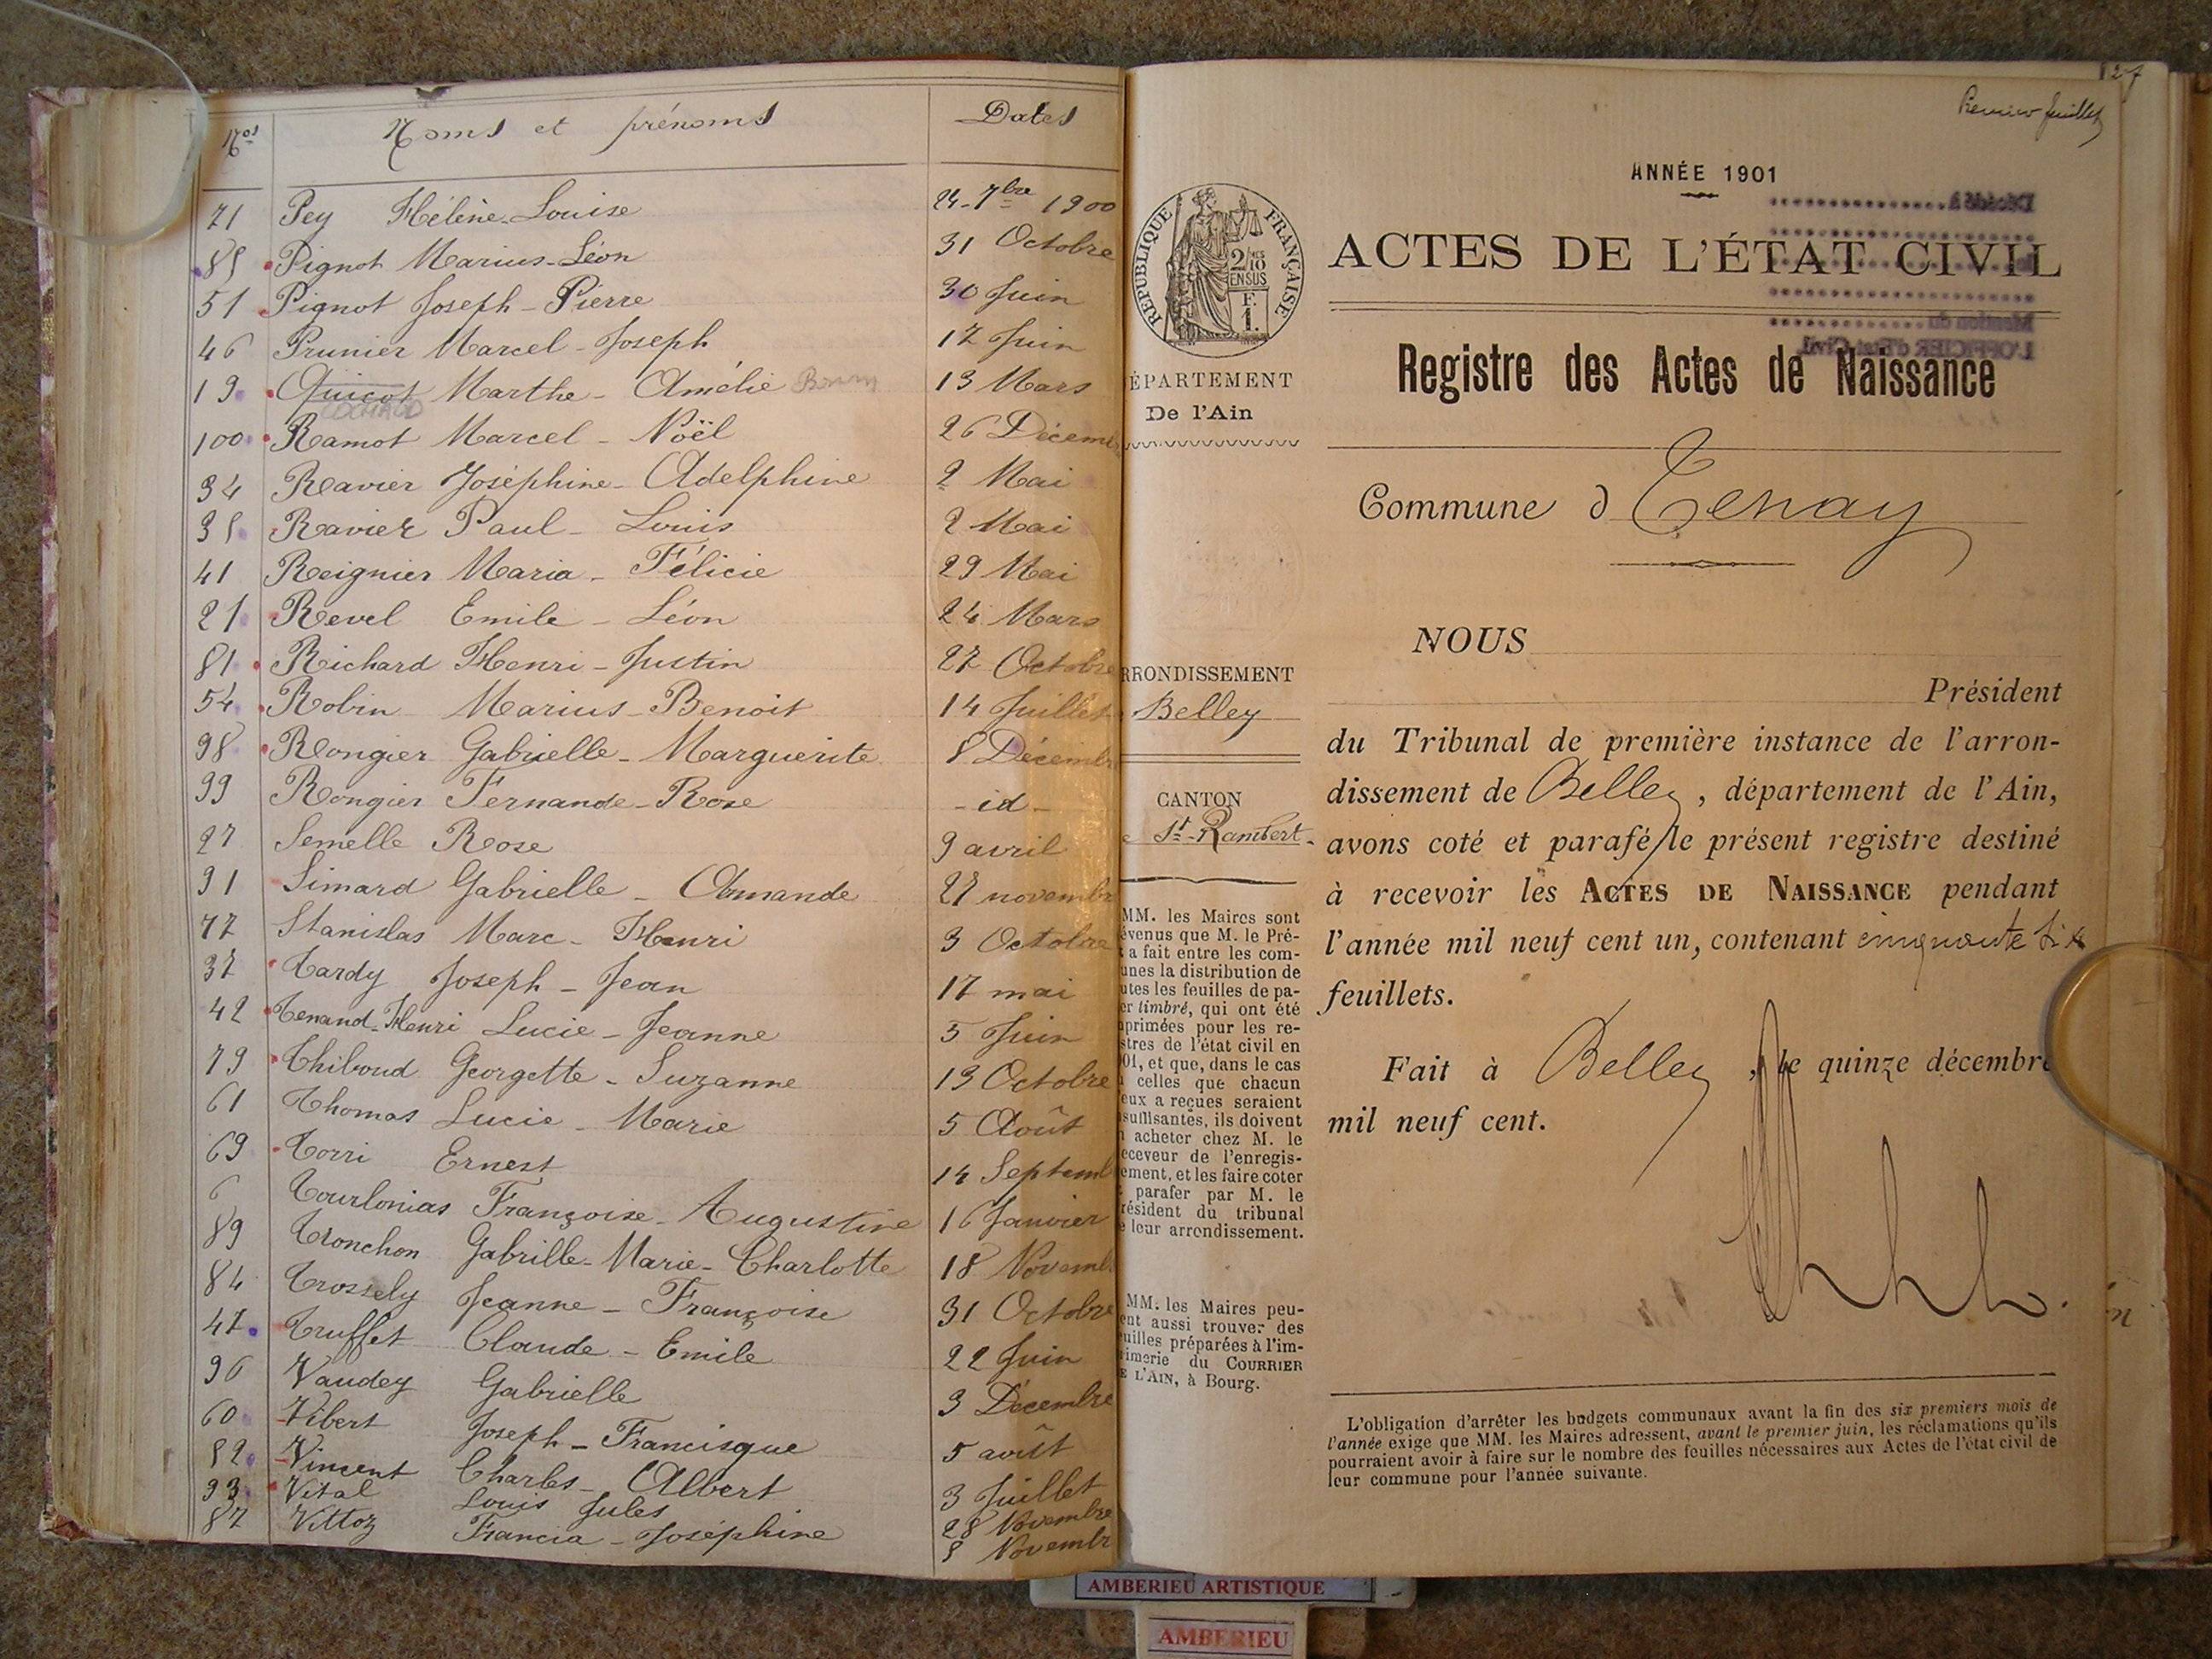 Nos Noms et prénoms Dates
71 Pey Hélène Louise 24-7bre 1900
85 Pignot Marius-Léon 31 Octobre
51 Pignot Joseph-Pierre 30 Juin
46 Prunier Marcel-Joseph 17 Juin
19 Quicot Marthe-Amélie 13 Mars
100 Ramot Marcel-Noël 26 Décem
34 Ravier Joséphine-Adelphine 2 Mai
35 Ravier Paul-Louis 2 Mai
41 Reignier Maria-Félicie 29 Mai
21 Revel Emile-Léon 24 Mars
81 Richard Henri-Justin 27 Octobre
54 Robin Marius-Benoit 14 Juillet
98 Rongier Gabrielle-Marguerite 8 Décembr
99 Rongier Fernande-Rose -id-
27 Semelle Rose 9 avril
91 Simard Gabrielle-Armande 27 novembr
77 Stanislas Marc-Henri 3 Octobre
37 Tardy Joseph-Jean 17 mai
42 Tenand-Henri Lucie-Jeanne 5 Juin
79 Thiboud Georgette-Suzanne 13 Octobre
61 Thomas Lucie-Marie 5 Août
69 Torri Ernest 14 Septemb
6 Tourlonias Françoise-Augustine 16 Janvier
89 Tronchon Gabrille-Marie-Charlotte 18 Novemb
84 Trossely Jeanne-Françoise 31 Octobre
47 Truffet Claude-Emile 22 Juin
96 Vaudey Gabrielle 3 Décembre
60 Vibert Joseph-Francisque 5 août
82 Vincent Charles-Albert 3 Juillet
93 Vital Louis Jules 28 Novembre
87 Vittoz Francia-Joséphine 8 Novembr
27
Premier feuillet
ANNÉE 1901
ACTES DE L'ÉTAT CIVIL
Registre des Actes de Naissance
Commune d Tenay
NOUS
Président
du Tribunal de première instance de l'arron-
dissement de Belley, département de l'Ain,
avons coté et parafé le présent registre destiné
à recevoir les ACTES DE NAISSANCE pendant
l'année mil neuf cent un, contenant cinquante six
feuillets.
Fait à Belley, le quinze décembre
mil neuf cent.
L'obligation d'arrêter les budgets communaux avant la fin des six premiers mois de
l'année exige que MM. les Maires adressent, avant le premier juin, les réclamations qu'ils
pourraient avoir à faire sur le nombre des feuilles nécessaires aux Actes de l'état civil de
leur commune pour l'année suivante.
RÉPUBLIQUE FRANÇAISE
2/10MES
EN SUS
F.
1.
ÉPARTEMENT
De l'Ain
RRONDISSEMENT
Belley
CANTON
e St-Rambert.
MM. les Maires sont
évenus que M. le Pré-
t a fait entre les com-
unes la distribution de
utes les feuilles de pa-
er timbré, qui ont été
primées pour les re-
stres de l'état civil en
01, et que, dans le cas
celles que chacun
eux a reçues seraient
suffisantes, ils doivent
acheter chez M. le
eceveur de l'enregis-
ement, et les faire coter
parafer par M. le
résident du tribunal
e leur arrondissement.
MM. les Maires peu-
ent aussi trouver des
uilles préparées à l'im-
rimerie du COURRIER
E L'AIN, à Bourg.
AMBERIEU ARTISTIQUE
AMBERIEU